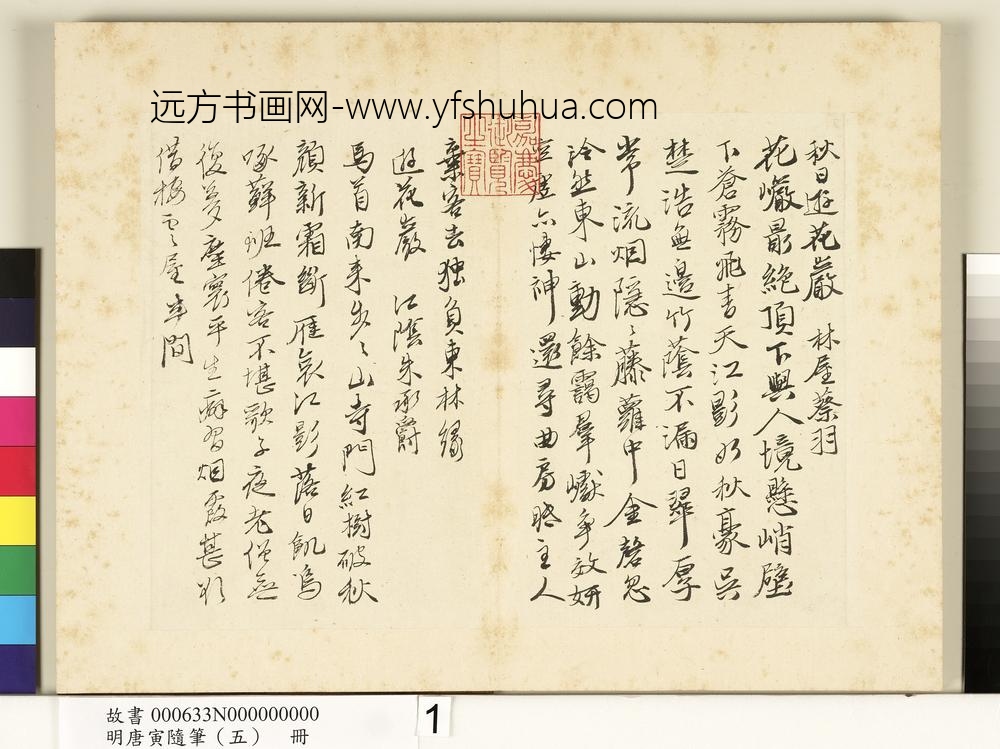 远方书画网-www.yfshuhua.com
秋日遊花巖 林屋蔡羽
花巘最絶頂下與人境懸峭壁
下蒼霧飛青天江影如秋豪吳
楚浩無邊竹蔭不漏日翠厚
常流烟隱〻藤蘿中金磬忽
泠然東山動餘靄羣巘爭放妍
亦悽神還尋曲房眺主人
棄客去独負東林緣
嘉慶御覽之寶
遊花巖 江陰朱承爵
馬首南来步〻山寺門紅樹破秋
顔新霜断雁哀江影落日飢烏
啄蘚班倦客不堪歌子夜老僧無
復夢塵寰平生癖習烟霞甚欲
借梅雲屋半間
故書 000633N000000000
明唐寅隨筆（五） 冊
1